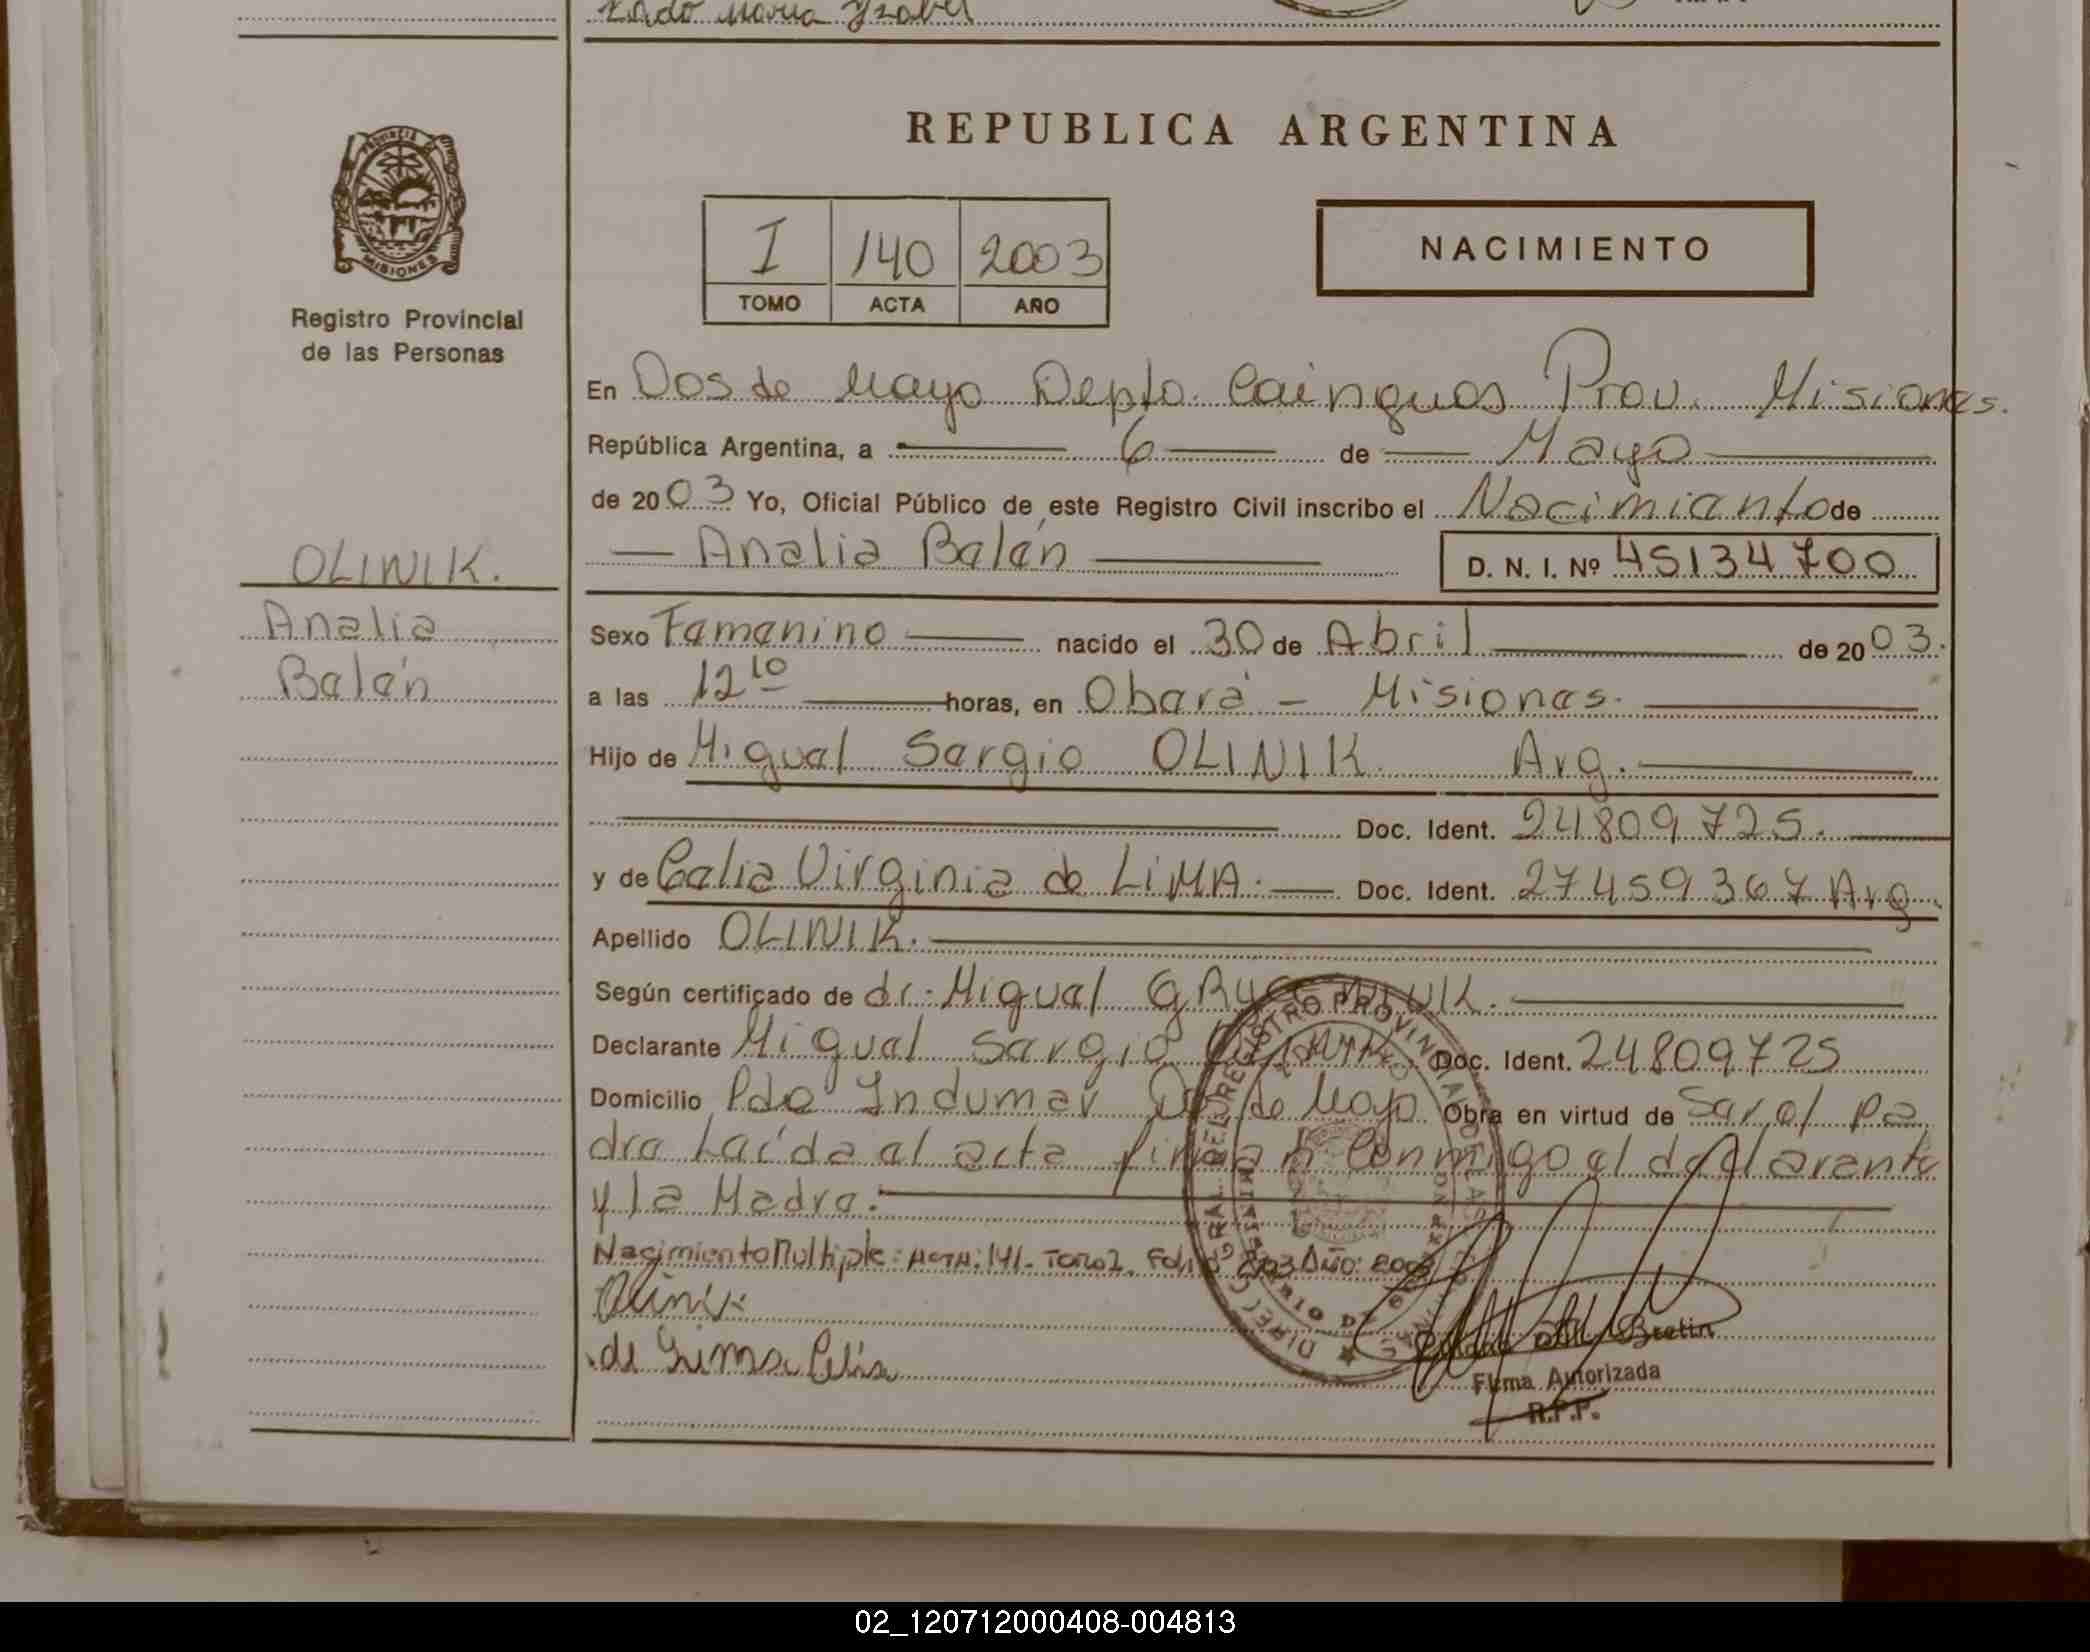 Maria Ysabel
REPUBLICA ARGENTINA
I 140 2003
TOMO ACTA AÑO
NACIMIENTO
MISIONES
Registro Provincial
de las Personas
En Dos de Mayo Depto. Cainguas Prov. Misiones.
República Argentina, a 6 de Mayo
de 2003 Yo, Oficial Público de este Registro Civil inscribo el Nacimiento de
Analia Belén D. N. I. Nº 45134700
OLINIK.
Analia
Belén
Sexo Femenino nacido el 30 de Abril de 2003.
a las 12 10 horas, en Oberá - Misiones.
Hijo de Miguel Sergio OLINIK Arg.
Doc. Ident. 24809725.
y de Celia Virginia de LiMA. Doc. Ident. 27459367 Arg.
Apellido OLINIK.
Según certificado de dr. Miguel
Declarante Miguel Sergio Doc. Ident. 24809725
Domicilio Pdo Indumar Dos de Mayo Obra en virtud de Ser el Pa
dre Leída el acta firman Conmigo el declarante
y la Madre.
Nacimiento Multiple: ACTA: 141. TOMO I. Folio AÑO: 2003
de Lima Celia
Bretin
Firma Autorizada
R.P.P.
02_120712000408-004813